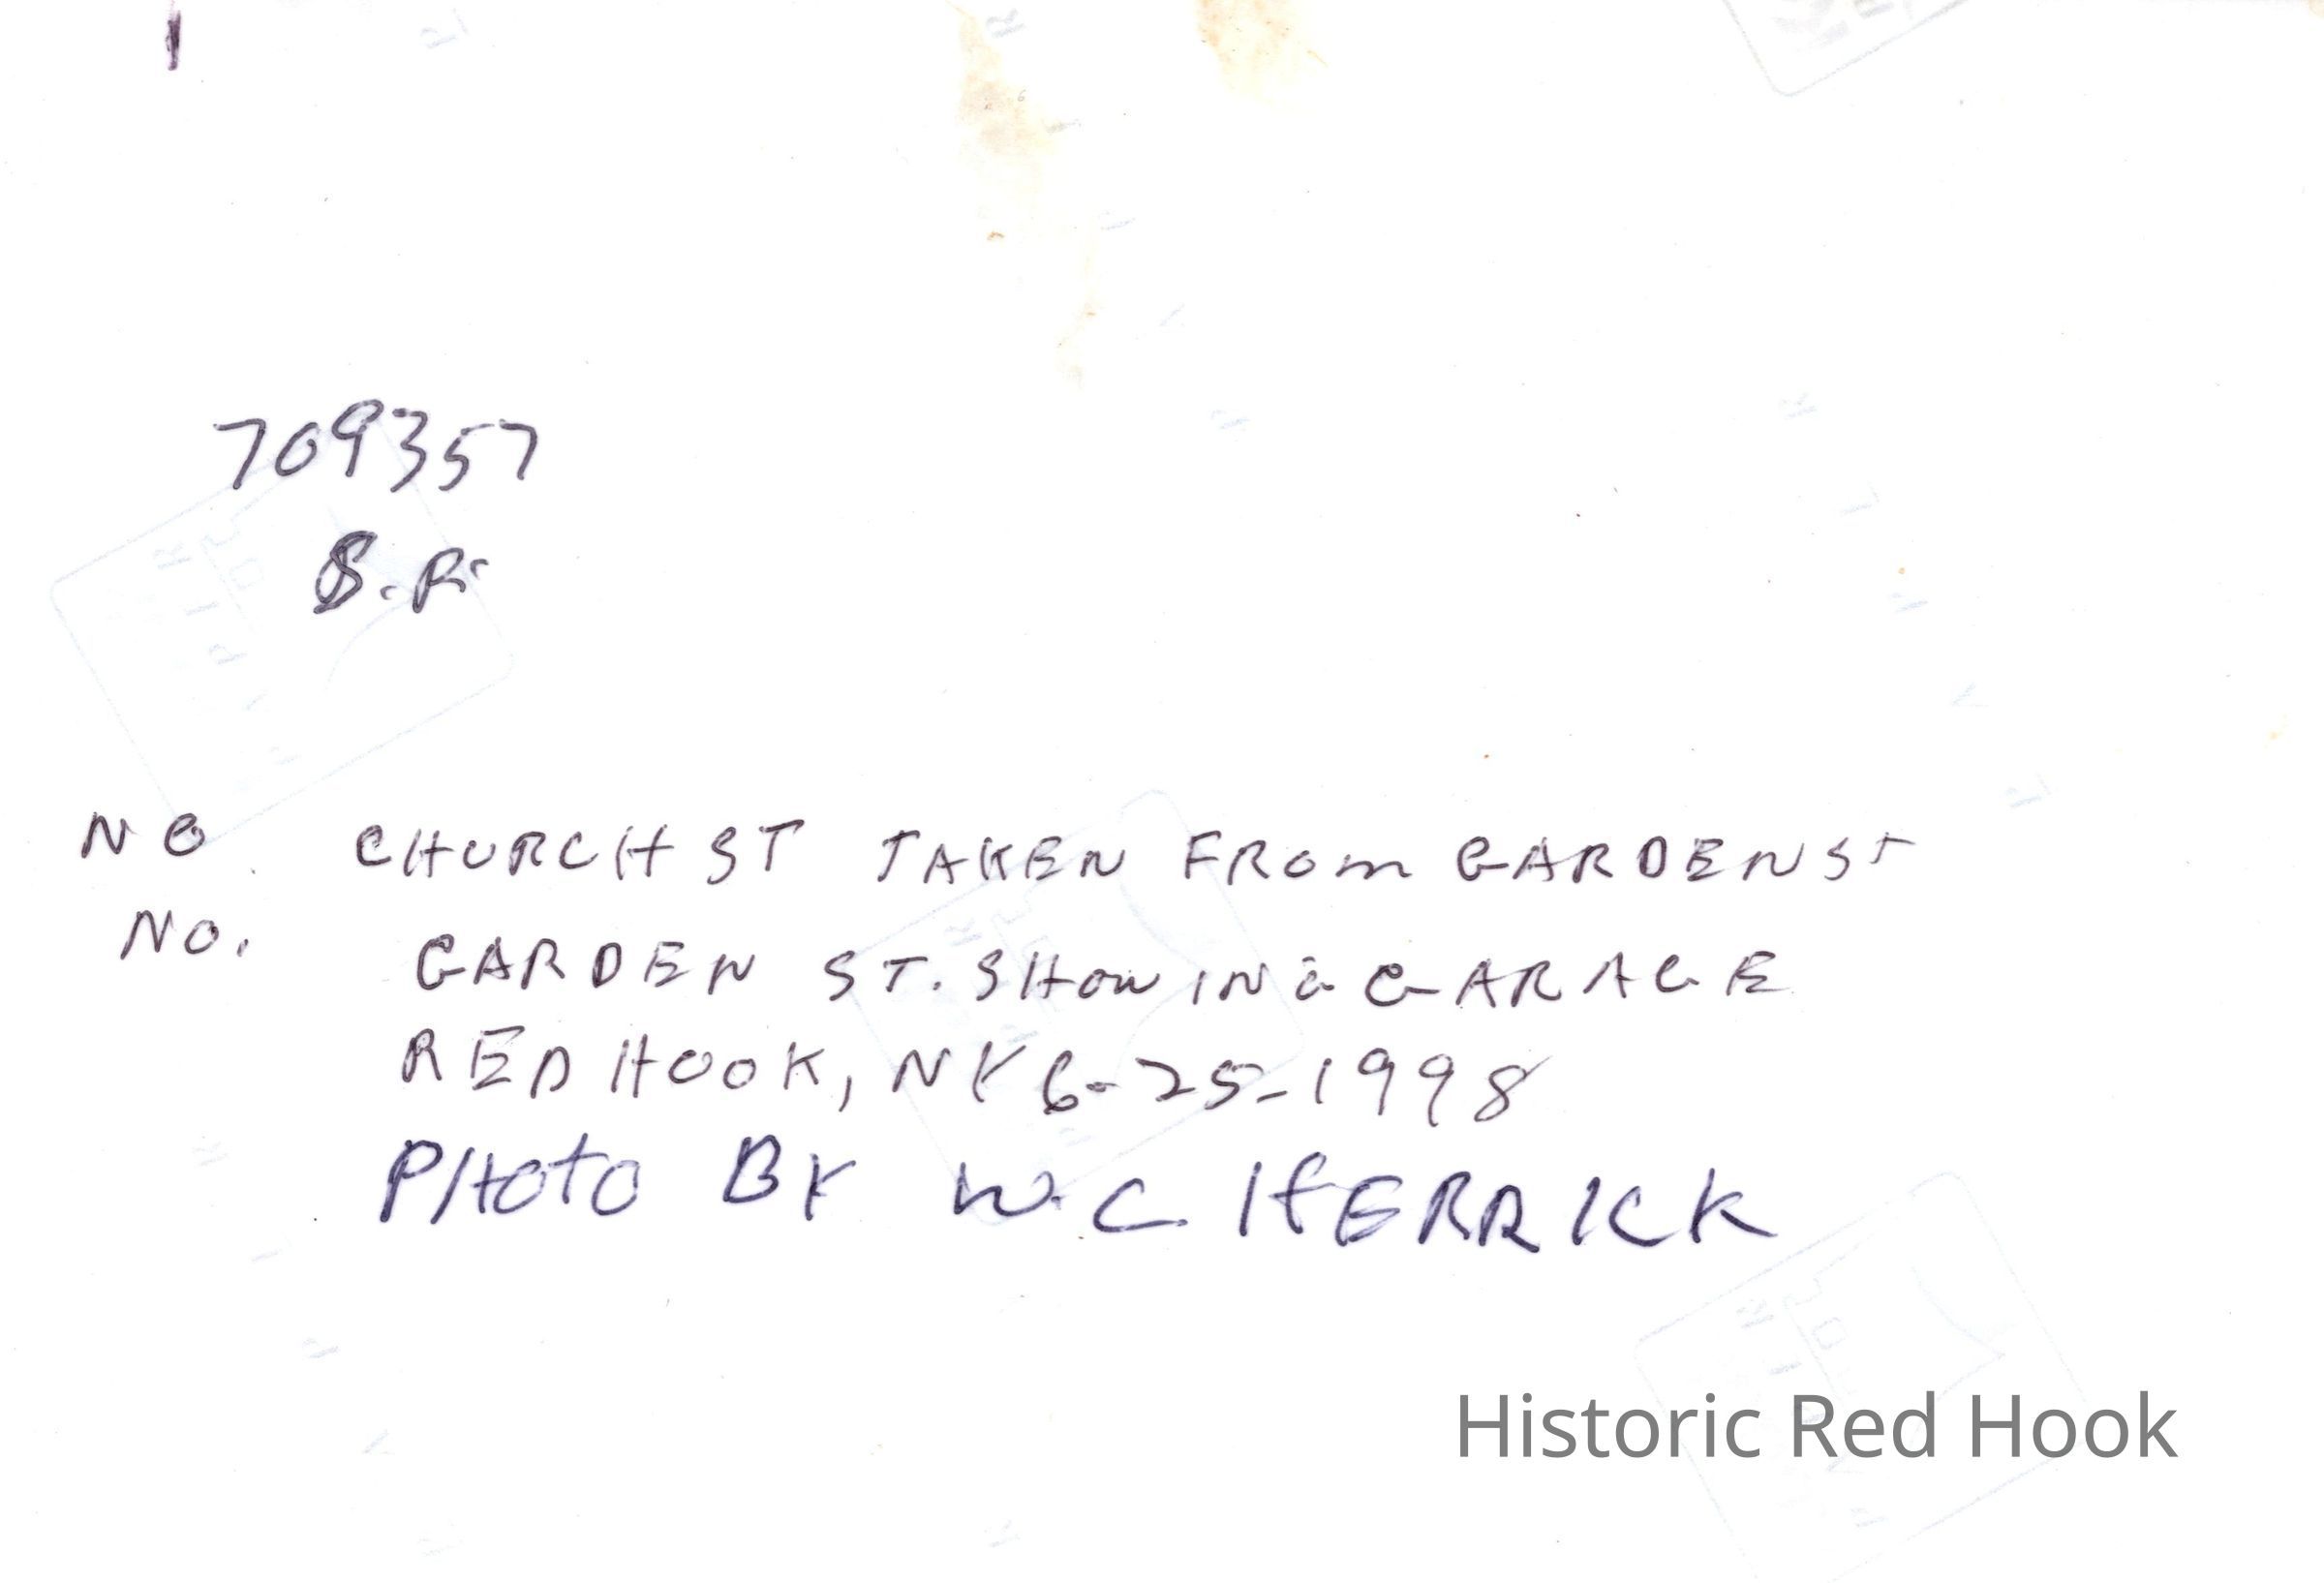 709357
B.R.
NO. CHURCH ST TAKEN FROM GARDEN St
NO. GARDEN ST. SHOWING GARAGE
RED HOOK, NY 6-25-1998
PHOTO BY W.C HERRICK
Historic Red Hook